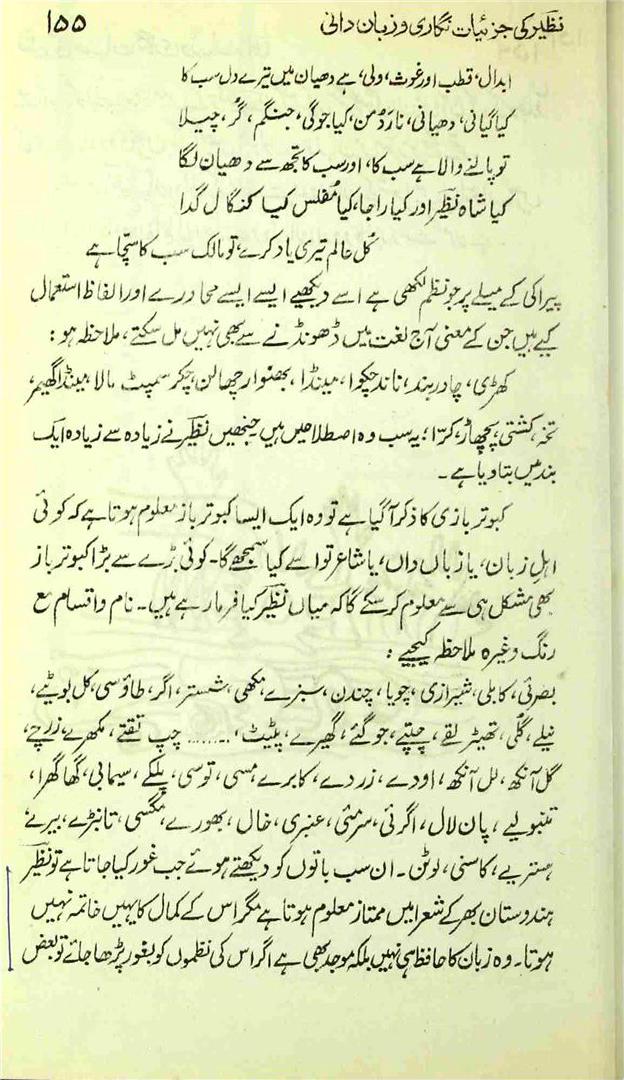 نظیر کی جزئیات نگاری و زبان دانی ۱۵۵
ابدال، قطب اور غوث، ولی، ہے دھیان میں تیرے دل سب کا
کیا گیانی، دھیانی، نارد مُن، کیا جوگی، جنگم، گُر، چیلا
تو پالنے والا ہے سب کا، اور سب کا تجھ سے دھیان لگا
کیا شاہ نظیرؔ اور کیا راجا، کیا مُفلس کیا کنگال گدا
کُل عالم تیری یاد کرے، تو مالک سب کا سچّا ہے
پیراکی کے میلے پر جو نظم لکھی ہے اسے دیکھیے ایسے ایسے محاورے اور الفاظ استعمال
کیے ہیں جن کے معنی آج لغت میں ڈھونڈنے سے بھی نہیں مل سکتے، ملاحظہ ہو :
کھڑی، چادر ہند، ناند چکوا، مینڈا، بھنوار چھالن، چکر سمیٹ مالا، مینڈا گھیر،
تختہ، کشتی، پچھاڑ، کرّا؛ یہ سب وہ اصطلاحیں ہیں جنھیں نظیرؔ نے زیادہ سے زیادہ ایک
بند میں بتا دیا ہے۔
کبوتر بازی کا ذکر آ گیا ہے تو وہ ایک ایسا کبوتر باز معلوم ہوتا ہے کہ کوئی
اہلِ زبان، یا زباں داں، یا شاعر تو اسے کیا سمجھے گا۔ کوئی بڑے سے بڑا کبوتر باز
بھی مشکل ہی سے معلوم کر سکے گا کہ میاں نظیرؔ کیا فرما رہے ہیں۔ نام و اقسام مع
رنگ وغیرہ ملاحظہ کیجیے :
بصرئی، کابلی، شیرازی، چویا، چندن، سبزے، مکھی، شستر، اگر، طاؤسی، کل پوٹیے،
نیلے، گلی، تھیڑ لقے، چیتے، جوگئے، گھیرے، پٹیٹ، ........ چپ تقتے، مکھرے، زرچے،
گل آنکھ، لل آنکھ، اودے، زردے، کابرے، مسی، توسی، پلکے، سیمابی، گھا گھرا،
تنبولیے، پان لال، اگرئی، سرمئی، عنبری، خال، بھورے، مگسی، تانبڑے، بیرے
ہستریے، کاسنی، لوٹن۔ ان سب باتوں کو دیکھتے ہوئے جب غور کیا جاتا ہے تو نظیرؔ
ہندوستان بھر کے شعرا میں ممتاز معلوم ہوتا ہے مگر اس کے کمال کا یہیں خاتمہ نہیں
ہوتا۔ وہ زبان کا حافظ ہی نہیں بلکہ موجد بھی ہے اگر اس کی نظموں کو بغور پڑھا جائے تو بعض